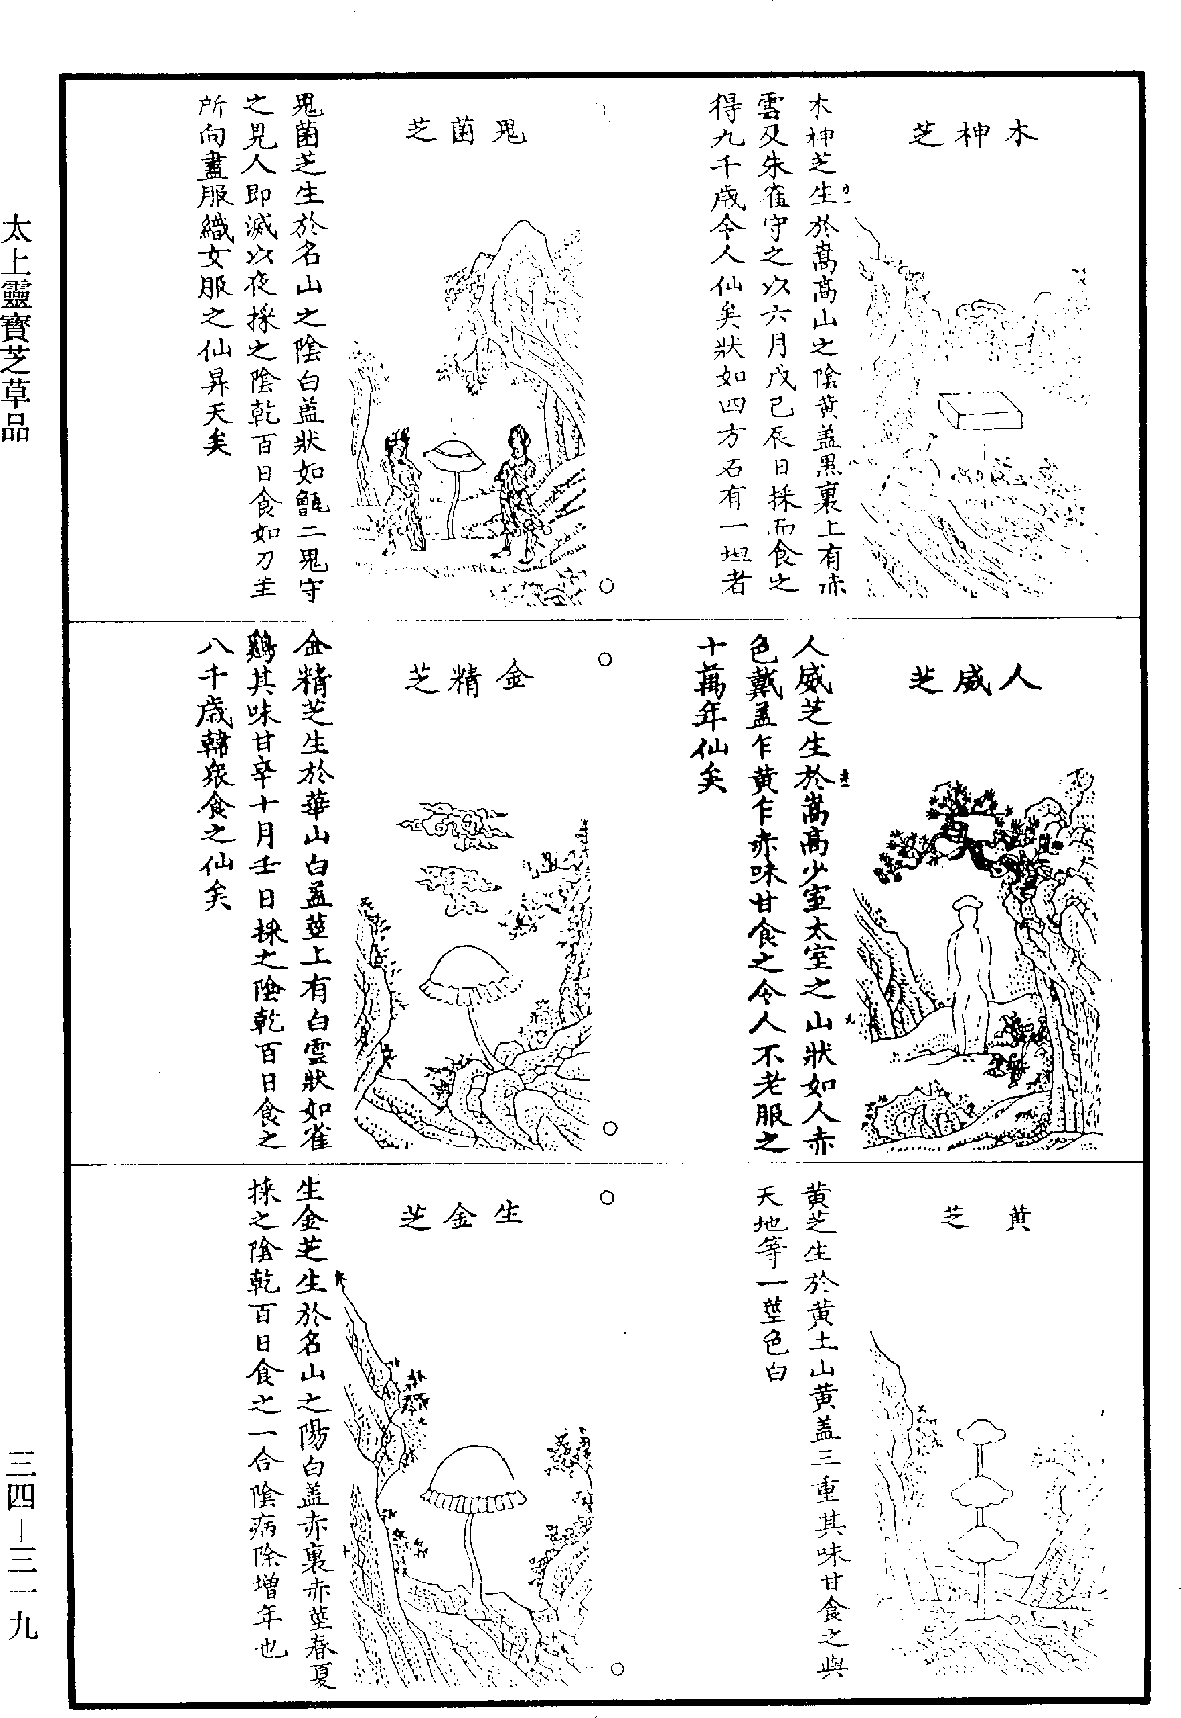 木神芝
木神芝生於嵩高山之陰黄蓋黑裏上有赤
雲又朱雀守之以六月戊己辰日採而食之
得九千歲令人仙矣狀如四方石有一坦者
鬼菌芝
鬼菌芝生於名山之陰白蓋狀如甑二鬼守
之見人即滅以夜採之陰乾百日食如刀圭
所向盡服織女服之仙昇天矣
人威芝
人威芝生於嵩高少室太室之山狀如人赤
色戴蓋乍黄乍赤味甘食之令人不老服之
十萬年仙矣
金精芝
金精芝生於華山白蓋莖上有白雲狀如雀
鷄其味甘辛十月壬日採之陰乾百日食之
八千歲韓衆食之仙矣
黄芝
黄芝生於黄土山黄蓋三重其味甘食之與
天地等一莖色白
生金芝
生金芝生於名山之陽白蓋赤裏赤莖春夏
採之陰乾百日食之一合陰病除增年也
太上靈寶芝草品
三四—三一九